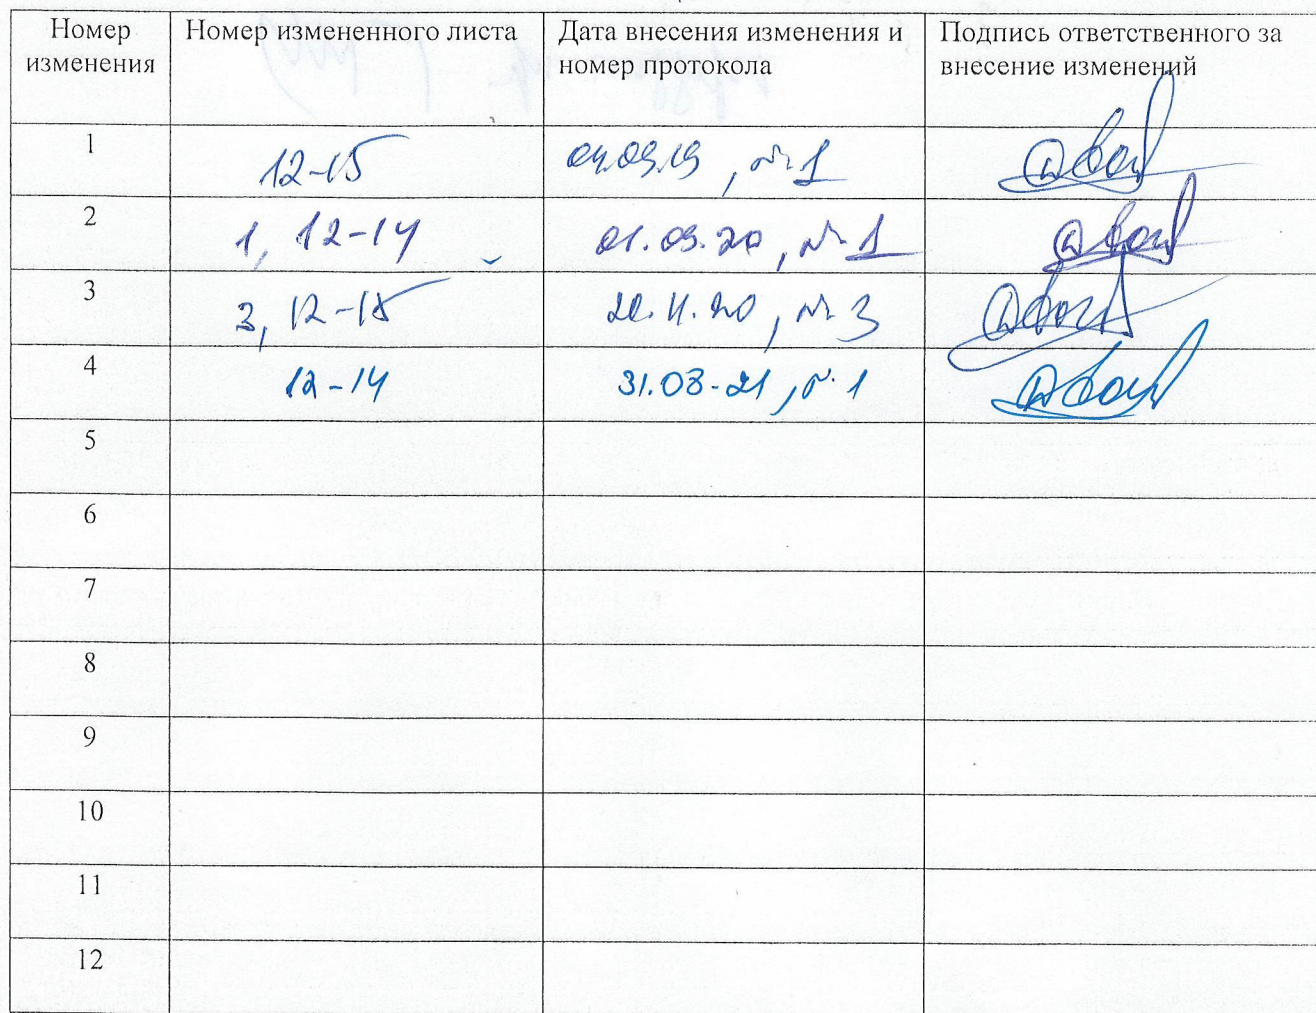 Номер изменения Номер измененного листа Дата внесения изменения и номер протокола Подпись ответственного за внесение изменений
1 12-15 04.09.19, № 1
2 1, 12-14 01.09.20, № 1
3 3, 12-15 20.11.20, № 3
4 12-14 31.08.21, № 1
5
6
7
8
9
10
11
12